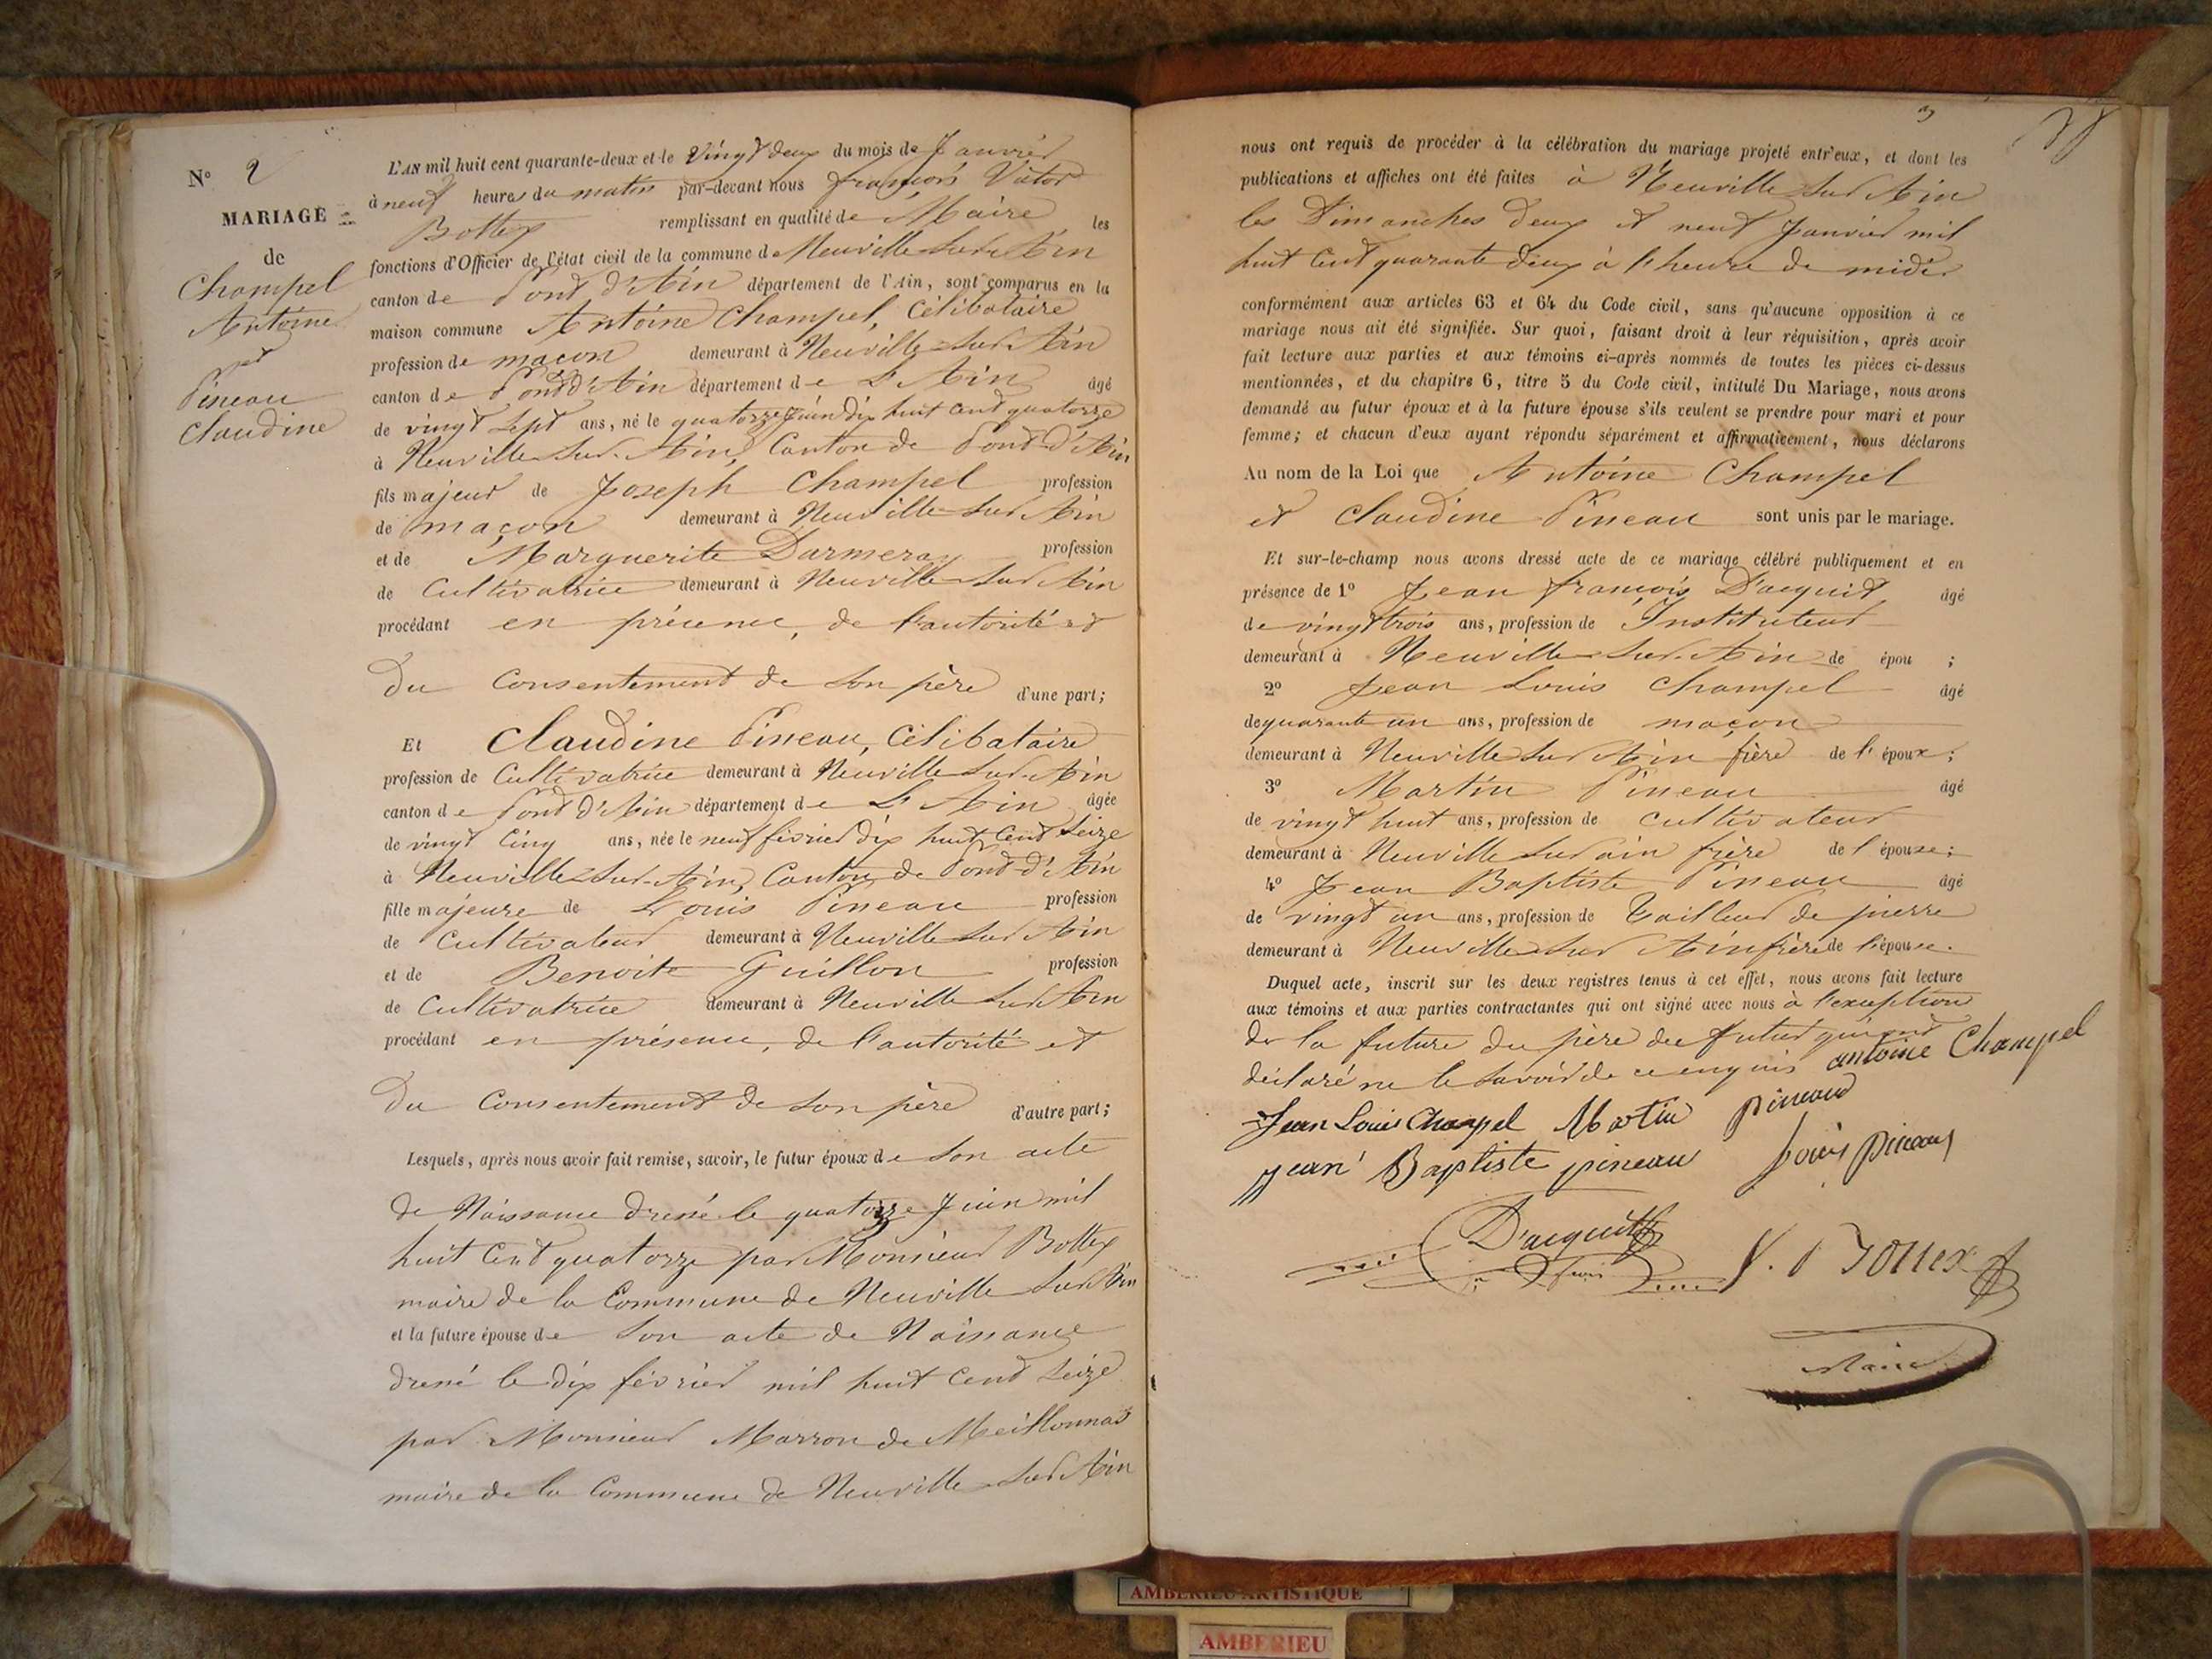 N° 2
MARIAGE
de
Champel
Antoine
et
Pineau
Claudine
L'AN mil huit cent quarante-deux et le vingt deux du mois de Janvier
à neuf heures du matin par-devant nous françois Victor
Bottex remplissant en qualité de Maire les
fonctions d'Officier de l'état civil de la commune de Neuville sur Ain
canton de Pont d'Ain département de l'Ain, sont comparus en la
maison commune Antoine Champel, Célibataire
profession de maçon demeurant à Neuville sur Ain
canton de Pont d'Ain département de L'Ain âgé
de vingt sept ans, né le quatorze juin dix huit cent quatorze
à Neuville sur Ain, Canton de Pont-d'Ain
fils majeur de Joseph Champel profession
de maçon demeurant à Neuville sur Ain
et de Marguerite Darmeray profession
de Cultivatrice demeurant à Neuville sur Ain
procédant en présence, de l'autorité et
du Consentement de son père d'une part;
Et Claudine Pineau, Célibataire
profession de Cultivatrice demeurant à Neuville sur Ain
canton de Pont d'Ain département de L'Ain âgée
de vingt cinq ans, née le neuf février dix huit Cent Seize
à Neuville sur Ain, Canton de Pont-d'Ain
fille majeure de Louis Pineau profession
de Cultivateur demeurant à Neuville sur Ain
et de Benoite Guillon profession
de Cultivatrice demeurant à Neuville sur Ain
procédant en présence, de l'autorité et
du Consentement de son père d'autre part;
Lesquels, après nous avoir fait remise, savoir, le futur époux de son acte
de Naissance dressé le quatorze Juin mil
huit Cent quatorze par Monsieur Bottex
maire de la Commune de Neuville sur Ain
et la future épouse de son acte de Naissance
dressé le dix février mil huit Cent Seize
par Monsieur Marron de Meillonnas
maire de la Commune de Neuville sur Ain
3
nous ont requis de procéder à la célébration du mariage projeté entr'eux, et dont les
publications et affiches ont été faites à Neuville sur Ain
les Dimanches deux et neuf Janvier mil
huit Cent quarante deux à l'heure de midi
conformément aux articles 63 et 64 du Code civil, sans qu'aucune opposition à ce
mariage nous ait été signifiée. Sur quoi, faisant droit à leur réquisition, après avoir
fait lecture aux parties et aux témoins ci-après nommés de toutes les pièces ci-dessus
mentionnées, et du chapitre 6, titre 5 du Code civil, intitulé Du Mariage, nous avons
demandé au futur époux et à la future épouse s'ils veulent se prendre pour mari et pour
femme; et chacun d'eux ayant répondu séparément et affirmativement, nous déclarons
Au nom de la Loi que Antoine Champel
et Claudine Pineau sont unis par le mariage.
Et sur-le-champ nous avons dressé acte de ce mariage célébré publiquement et en
présence de 1° Jean françois Dacquit âgé
de vingt trois ans, profession de Instituteur
demeurant à Neuville sur Ain de épou ;
2° Jean Louis Champel âgé
de quarante un ans, profession de maçon
demeurant à Neuville sur Ain frère de l'époux;
3° Martin Pineau âgé
de vingt huit ans, profession de cultivateur
demeurant à Neuville sur ain frère de l'épouse;
4° Jean Baptiste Pineau âgé
de vingt un ans, profession de Tailleur de pierre
demeurant à Neuville sur Ain frère de l'épouse.
Duquel acte, inscrit sur les deux registres tenus à cet effet, nous avons fait lecture
aux témoins et aux parties contractantes qui ont signé avec nous à l'exception
de la future du père du futur qui ont
déclaré ne le savoir de ce enquis antoine Champel
Jean Louis Champel Martin pineau
jean Baptiste pineau Louis pineau
Dacquit
Bottex
Maire
AMBERIEU ARTISTIQUE
AMBERIEU